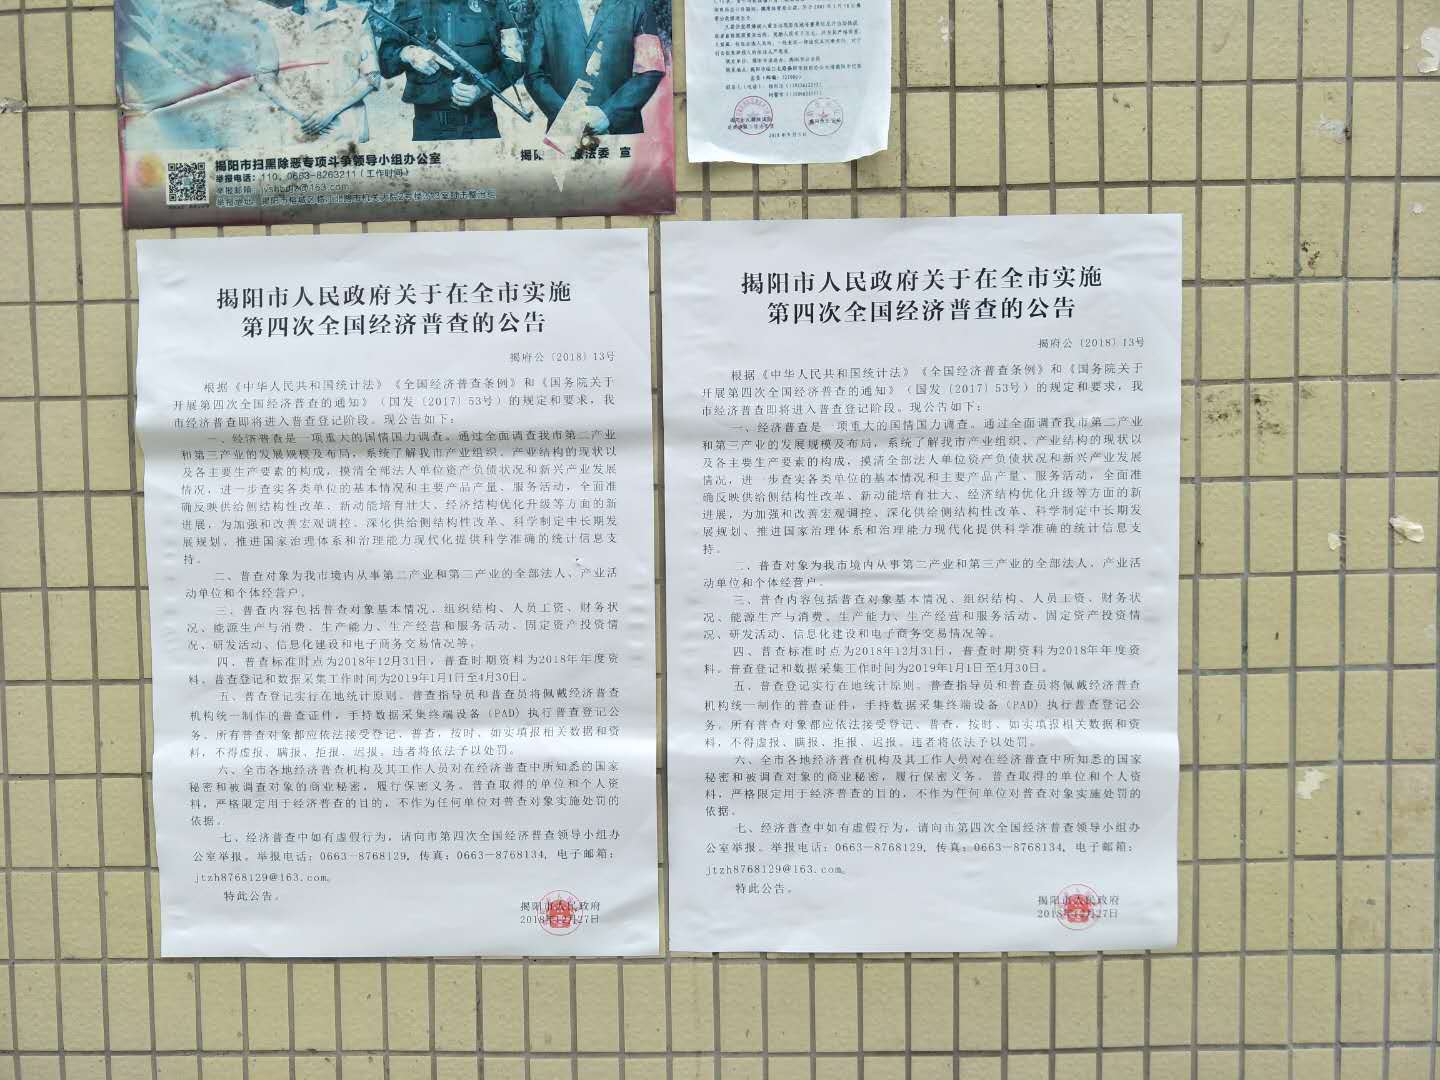 揭阳市扫黑除恶专项斗争领导小组办公室
举报电话：110、0663-8263211（工作时间）
揭阳
法委 宣
2018年
揭阳市人民政府关于在全市实施
第四次全国经济普查的公告
揭府公〔2018〕13号
根据《中华人民共和国统计法》《全国经济普查条例》和《国务院关于
开展第四次全国经济普查的通知》（国发〔2017〕53号）的规定和要求，我
市经济普查即将进入普查登记阶段。现公告如下：
一、经济普查是一项重大的国情国力调查。通过全面调查我市第二产业
和第三产业的发展规模及布局，系统了解我市产业组织、产业结构的现状以
及各主要生产要素的构成，摸清全部法人单位资产负债状况和新兴产业发展
情况，进一步查实各类单位的基本情况和主要产品产量、服务活动，全面准
确反映供给侧结构性改革、新动能培育壮大、经济结构优化升级等方面的新
进展，为加强和改善宏观调控、深化供给侧结构性改革、科学制定中长期发
展规划、推进国家治理体系和治理能力现代化提供科学准确的统计信息支
持。
二、普查对象为我市境内从事第二产业和第三产业的全部法人、产业活
动单位和个体经营户。
三、普查内容包括普查对象基本情况、组织结构、人员工资、财务状
况、能源生产与消费、生产能力、生产经营和服务活动、固定资产投资情
况、研发活动、信息化建设和电子商务交易情况等。
四、普查标准时点为2018年12月31日，普查时期资料为2018年年度资
料。普查登记和数据采集工作时间为2019年1月1日至4月30日。
五、普查登记实行在地统计原则。普查指导员和普查员将佩戴经济普查
机构统一制作的普查证件，手持数据采集终端设备（PAD）执行普查登记公
务。所有普查对象都应依法接受登记、普查，按时、如实填报相关数据和资
料，不得虚报、瞒报、拒报、迟报。违者将依法予以处罚。
六、全市各地经济普查机构及其工作人员对在经济普查中所知悉的国家
秘密和被调查对象的商业秘密，履行保密义务。普查取得的单位和个人资
料，严格限定用于经济普查的目的，不作为任何单位对普查对象实施处罚的
依据。
七、经济普查中如有虚假行为，请向市第四次全国经济普查领导小组办
公室举报。举报电话：0663—8768129，传真：0663—8768134，电子邮箱：
jtzh8768129@163.com。
特此公告。
揭阳市人民政府
2018年12月27日
揭阳市人民政府关于在全市实施
第四次全国经济普查的公告
揭府公〔2018〕13号
根据《中华人民共和国统计法》《全国经济普查条例》和《国务院关于
开展第四次全国经济普查的通知》（国发〔2017〕53号）的规定和要求，我
市经济普查即将进入普查登记阶段。现公告如下：
一、经济普查是一项重大的国情国力调查。通过全面调查我市第二产业
和第三产业的发展规模及布局，系统了解我市产业组织、产业结构的现状以
及各主要生产要素的构成，摸清全部法人单位资产负债状况和新兴产业发展
情况，进一步查实各类单位的基本情况和主要产品产量、服务活动，全面准
确反映供给侧结构性改革、新动能培育壮大、经济结构优化升级等方面的新
进展，为加强和改善宏观调控、深化供给侧结构性改革、科学制定中长期发
展规划、推进国家治理体系和治理能力现代化提供科学准确的统计信息支
持。
二、普查对象为我市境内从事第二产业和第三产业的全部法人、产业活
动单位和个体经营户。
三、普查内容包括普查对象基本情况、组织结构、人员工资、财务状
况、能源生产与消费、生产能力、生产经营和服务活动、固定资产投资情
况、研发活动、信息化建设和电子商务交易情况等。
四、普查标准时点为2018年12月31日，普查时期资料为2018年年度资
料。普查登记和数据采集工作时间为2019年1月1日至4月30日。
五、普查登记实行在地统计原则。普查指导员和普查员将佩戴经济普查
机构统一制作的普查证件，手持数据采集终端设备（PAD）执行普查登记公
务。所有普查对象都应依法接受登记、普查，按时、如实填报相关数据和资
料，不得虚报、瞒报、拒报、迟报。违者将依法予以处罚。
六、全市各地经济普查机构及其工作人员对在经济普查中所知悉的国家
秘密和被调查对象的商业秘密，履行保密义务。普查取得的单位和个人资
料，严格限定用于经济普查的目的，不作为任何单位对普查对象实施处罚的
依据。
七、经济普查中如有虚假行为，请向市第四次全国经济普查领导小组办
公室举报。举报电话：0663—8768129，传真：0663—8768134，电子邮箱：
jtzh8768129@163.com。
特此公告。
揭阳市人民政府
2018年12月27日